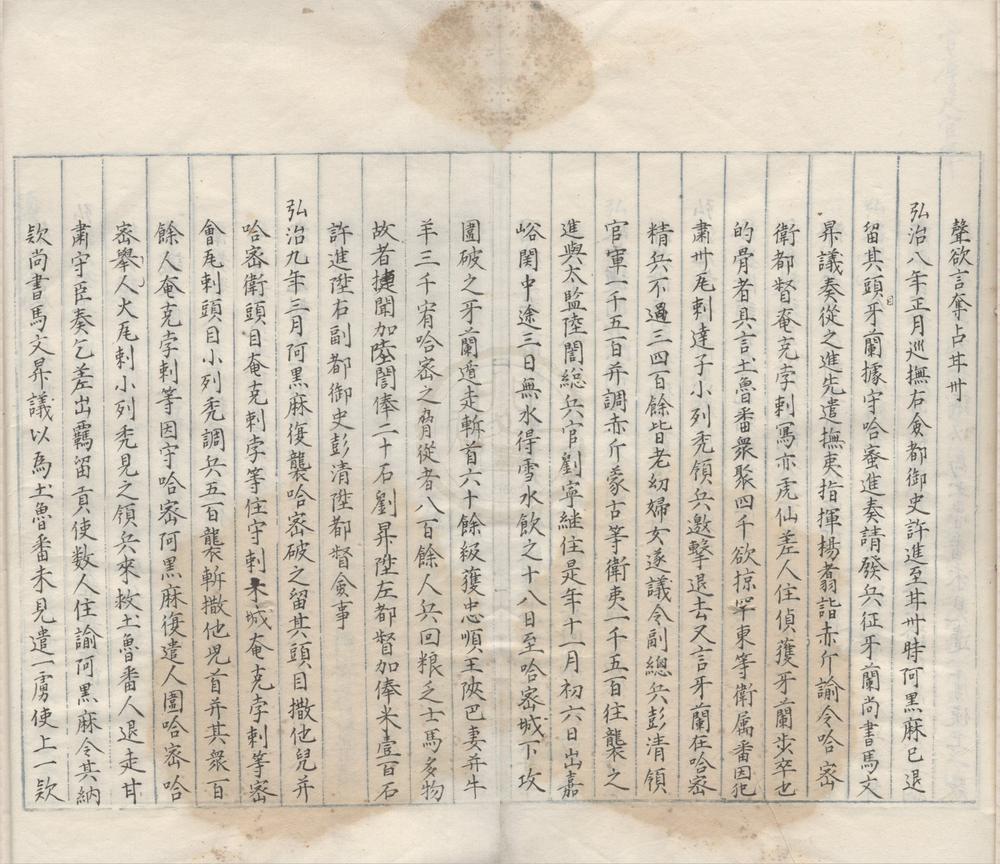 聲欲言奪占甘州
弘治八年正月巡撫右僉都御史許進至甘州時阿黑麻已退
留其頭目牙蘭據守哈蜜進奏請發兵征牙蘭尚書馬文
昇議奏從之進先遣撫夷指揮楊翥詣赤斤諭令哈密
衛都督奄克孛剌寫亦虎仙差人往偵獲牙蘭步卒也
的骨者具言土魯番衆聚四千欲掠罕東等衛属番因犯
肅州瓦剌達子小列禿領兵邀擊退去又言牙蘭在哈密
精兵不過三四百餘皆老幼婦女遂議令副總兵彭清領
官軍一千五百并調赤斤蒙古等衛夷一千五百往襲之
進與太監陸誾總兵官劉寧継往是年十一月初六日出嘉
峪関中途三日無水得雪水飲之十八日至哈密城下攻
圍破之牙蘭遁走斬首六十餘級獲忠順王陝巴妻并牛
羊三千宥哈密之脅從者八百餘人兵回粮乏士馬多物
故者捷聞加陸誾俸二十石劉昇陞左都督加俸米壹百石
許進陞右副都御史彭清陞都督僉事
弘治九年三月阿黑麻復襲哈密破之留其頭目撒他兒并
哈密衛頭目奄克剌孛等住守剌木城奄克孛剌等密
會瓦剌頭目小列禿調兵五百襲斬撒他児首并其衆百
餘人奄克孛剌等因守哈密阿黑麻復遣人圍哈密哈
密舉人火瓦剌小列禿見之領兵來救土魯番人退走甘
肅守臣奏乞差出羈留貢使数人住諭阿黑麻令其納
欵尚書馬文昇議以為土魯番未見遣一虜使上一欵